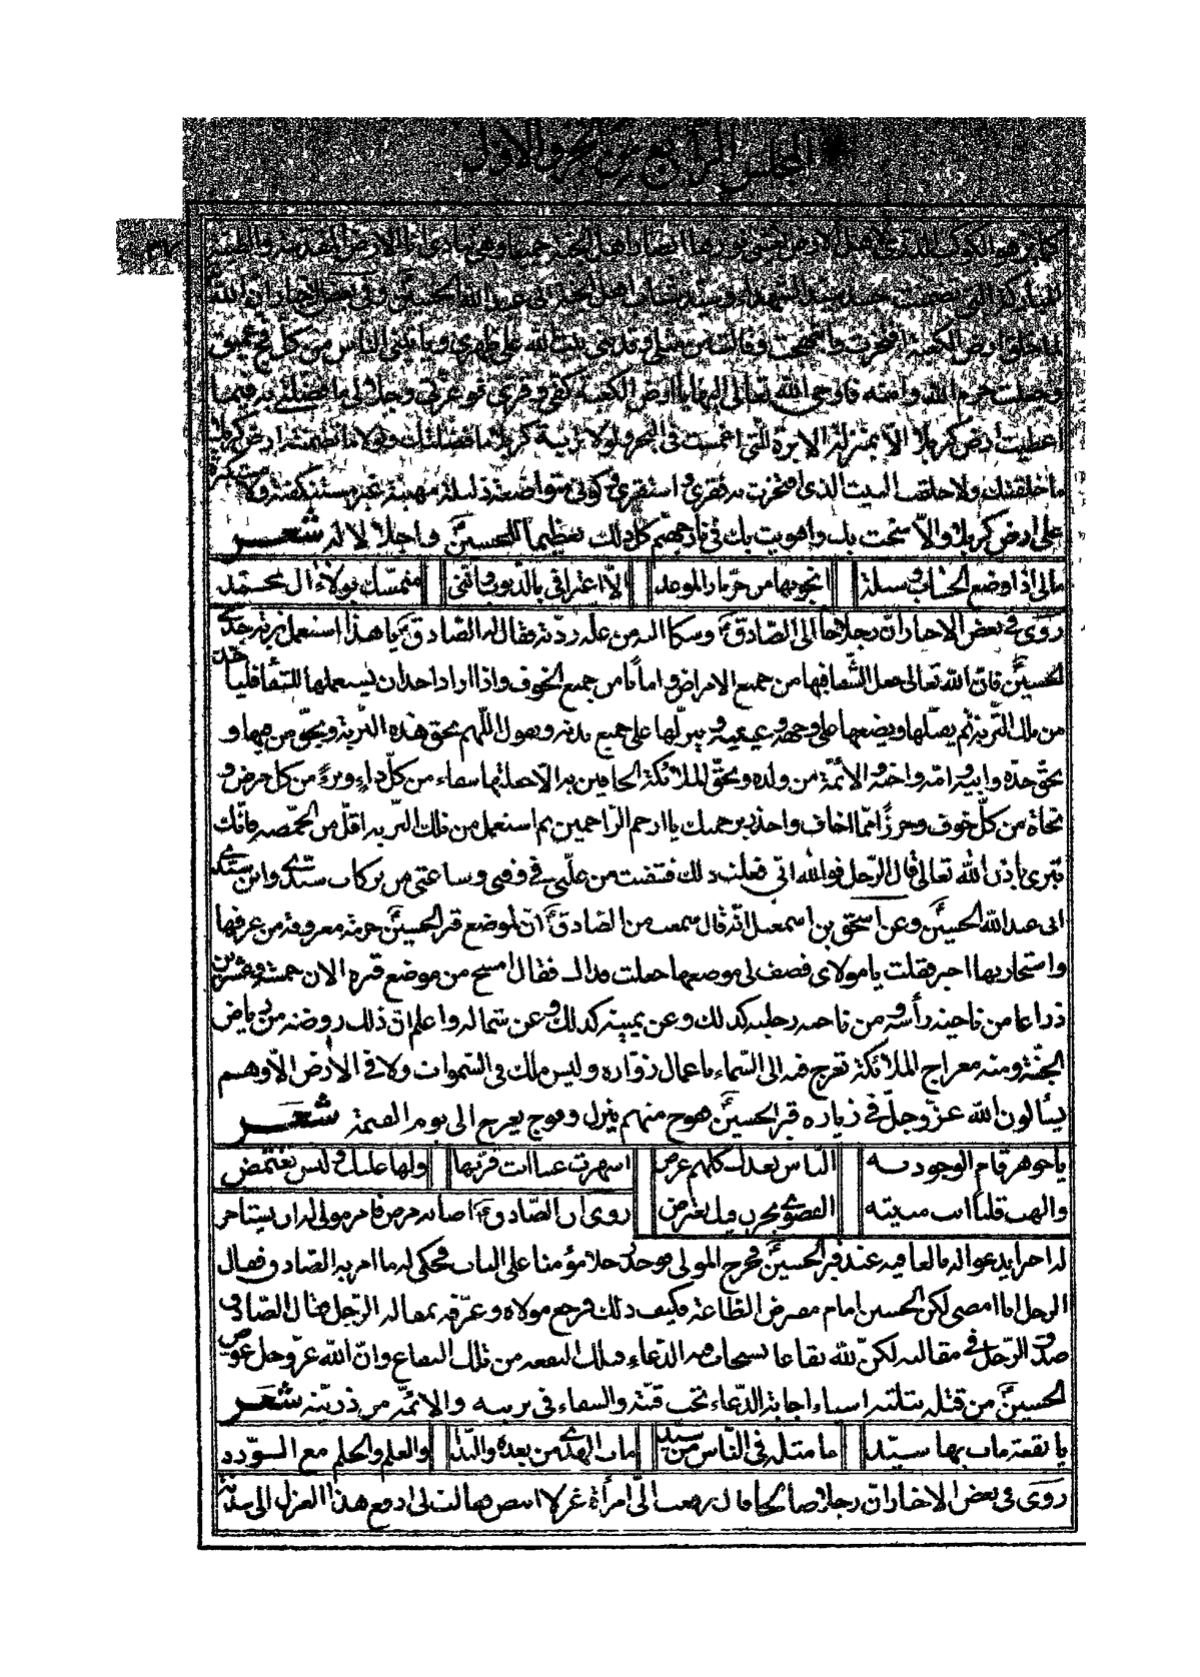 المجلس الرابع من الجزو الاول
كما يزهو الكوكب الدرى لاهل الارض يغشى نورها ابصار اهل الجنة جميعا وهى تنادى انا الارض المقدسة والطينة
المباركة التى تضمنت جسد سيد الشهداء وسيد شباب اهل الجنة ابى عبد الله الحسين وفى بعض الاخبار ان الله
لما خلق ارض الكعبة افتخرت وابتهجت وقالت من مثلى وقد بنى بيت الله على ظهرى ويأتينى الناس من كل فج عميق
وجعلت حرم الله وامنه فاوحى الله تعالى اليها يا ارض الكعبة كفى وقرى فو عزتى وجلالى ما فضلت به فيما
اعطيت ارض كربلا الا بمنزلة الابرة التى غمست فى البحر ولولا تربة كربلا ما فضلتك ولولا ما تضمنت ارض كربلا
ما خلقتك ولا خلقت البيت الذى افتخرت به فقرى واستقرى وكونى متواضعة ذليلة مهينة غير مستنكفة ولا مستكبرة
على ارض كربلا والا سخت بك واهويت بك فى نار جهنم كل ذلك تعظيما للحسين واجلالا له شعر
مالى اذا وضع الحساب وسيلة انجو بها من حر نار الموعد الا اعترافى بالذنوب واننى متمسك بولاء ال محمد
روى فى بعض الاخبار ان رجلا جاء الى الصادق وشكا اليه من علة ردته فقال له الصادق يا هذا استعمل تربة جدى
الحسين فان الله تعالى جعل الشفا فيها من جميع الامراض واماناً من جميع الخوف واذا اراد احدان يستعملها للشفا فليأخذ
من تلك التربة ثم يقبلها ويضعها على وجهه وعينيه ويمرّها على جميع بدنه ويقول اللهم بحق هذه التربة وبحق من فيها و
بحق جده وابيه وامه واخيه والائمة من ولده وبحق الملائكة الحافين به الا جعلتها شفاء من كل داء وبرءً من كل مرض و
نجاة من كل خوف وحرزاً مما اخاف واحذر برحمتك يا ارحم الراحمين ثم استعمل من تلك التربة اقل من الحمصة فانك
تبرى باذن الله تعالى قال الرجل فو الله انى فعلت ذلك فشفيت من علتى فى وقتى وساعتى من بركات سيدى وابن سيدى
ابى عبد الله الحسين وعن اسحق بن اسمعيل انه قال سمعت من الصادق ان لموضع قبر الحسين حرمة معروفة من عرفها
واستجار بها اجير فقلت يا مولاى فصف لى موضعها جعلت فداك فقال امسح من موضع قبره الان خمسة وعشرين
ذراعا من ناحية رأسه ومن ناحيه رجليه كذلك وعن يمينه كذلك وعن شماله واعلم ان ذلك روضة من رياض
الجنة ومنه معراج الملائكة تعرج فيه الى السماء باعمال زواره وليس ملك فى السموات ولا فى الارض الا وهم
يسألون الله عز وجل فى زيارة قبر الحسين ففوج منهم ينزل وفوج يعرج الى يوم القيمة شعر
يا جوهر قام الوجود به الناس بعدك كلهم عرض اسهرت عينا انت قرتها ولها عليك فليس تغتمض
والهب قلبا انت منيته القصوى بحزن ليس ينقرض روى ان الصادق اصابه مرض فامر مولى له ان يستاجر
له اجيرا يدعو له بالعافيه عند قبر الحسين فخرج المولى فوجد رجلا مؤمنا على الباب فحكى له ما امر به الصادق فقال
الرجل انا امضى لكن الحسين امام مفترض الطاعة فكيف ذلك فرجع مولاه وعرفه بمقالة الرجل فقال الصادق
صدق الرجل فى مقاله لكن لله بقاعا يستجاب فيه الدعاء وتلك البقعة من تلك البقاع وان الله عز وجل عوض
الحسين من قتله بثلثة اشياء اجابة الدعاء تحت قبته والشفاء فى تربته والائمة من ذريته شعر
يا بقعة مات بها سيد ما مثله فى الناس من سيد مات الهدى من بعده والندا والعلم والحلم مع السؤدد
روى فى بعض الاخبار ان رجلا صالحا قال دفعت الى امرأة غزلا ابيض فقالت لى ادفع هذا الغزل الى سدنة